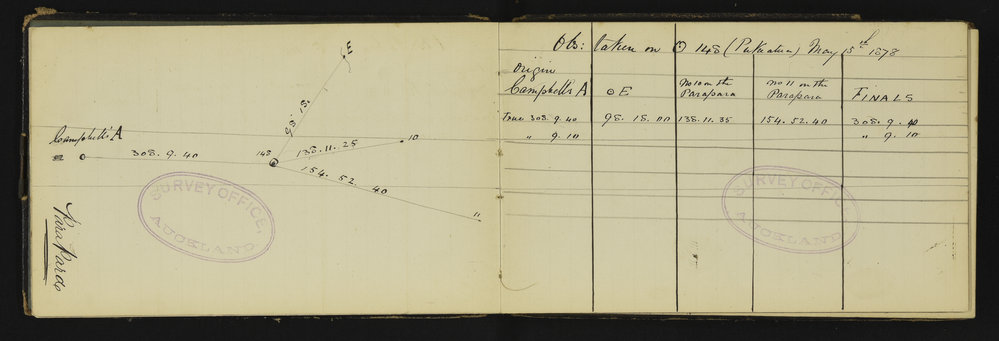 E
98. 18.
Campbell's A
308. 9. 40
148
138. 11. 25
10
154. 52. 40
11
ParaPara
SURVEY OFFICE,
AUCKLAND.
Obs: taken on ⊙ 148 (Pukeatua) May 15th 1878
Origin
Campbell's A
⊙ E
No 10 on the Parapara
No 11 on the Parapara
FINALS
True 308. 9. 40
98. 18. 00
138. 11. 35
154. 52. 40
308. 9. 40
" 9. 10
" 9. 10
SURVEY OFFICE,
AUCKLAND.